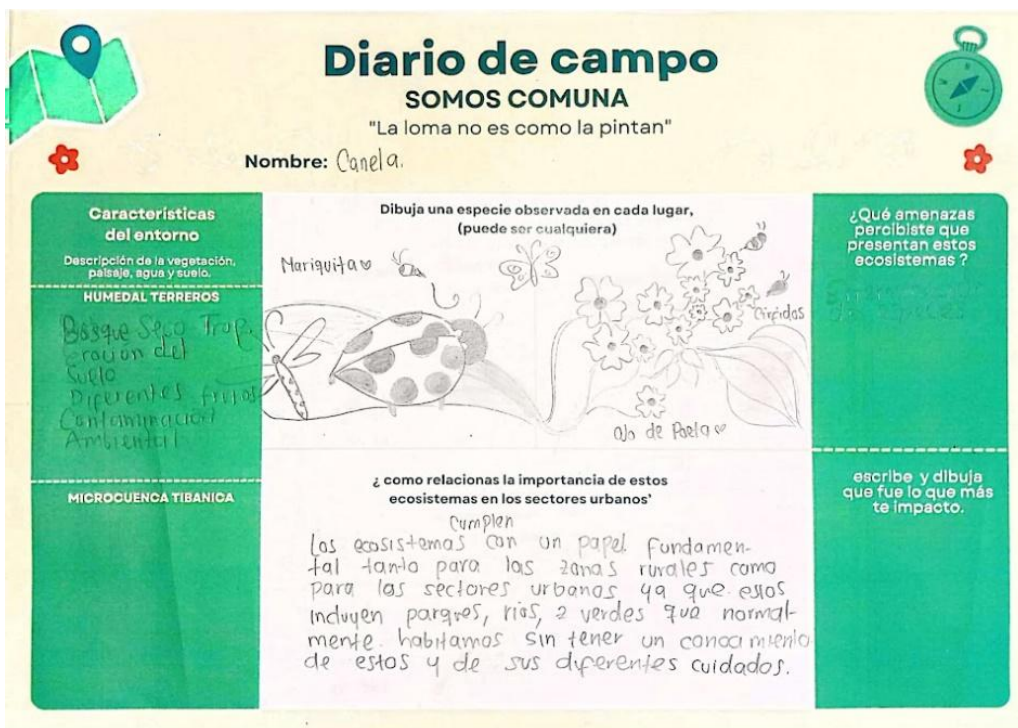 Diario de campo
SOMOS COMUNA
"La loma no es como la pintan"
Nombre: Canela.
Características
del entorno
Descripción de la vegetación,
paisaje, agua y suelo.
HUMEDAL TERREROS
Bosque Seco Trop.
erocion del
Suelo
Diferentes frutos
Contaminacion
Ambiental
MICROCUENCA TIBANICA
Dibuja una especie observada en cada lugar,
(puede ser cualquiera)
Mariquita
Ojo de Poeta
¿ como relacionas la importancia de estos
ecosistemas en los sectores urbanos'
Cumplen
Los ecosistemas con un papel fundamen-
tal tanto para las zonas rurales como
para los sectores urbanos ya que estos
incluyen parques, rios, z verdes que normal-
mente habitamos sin tener un conocimiento
de estos y de sus diferentes cuidados.
¿Qué amenazas
percibiste que
presentan estos
ecosistemas ?
escribe y dibuja
que fue lo que más
te impacto.